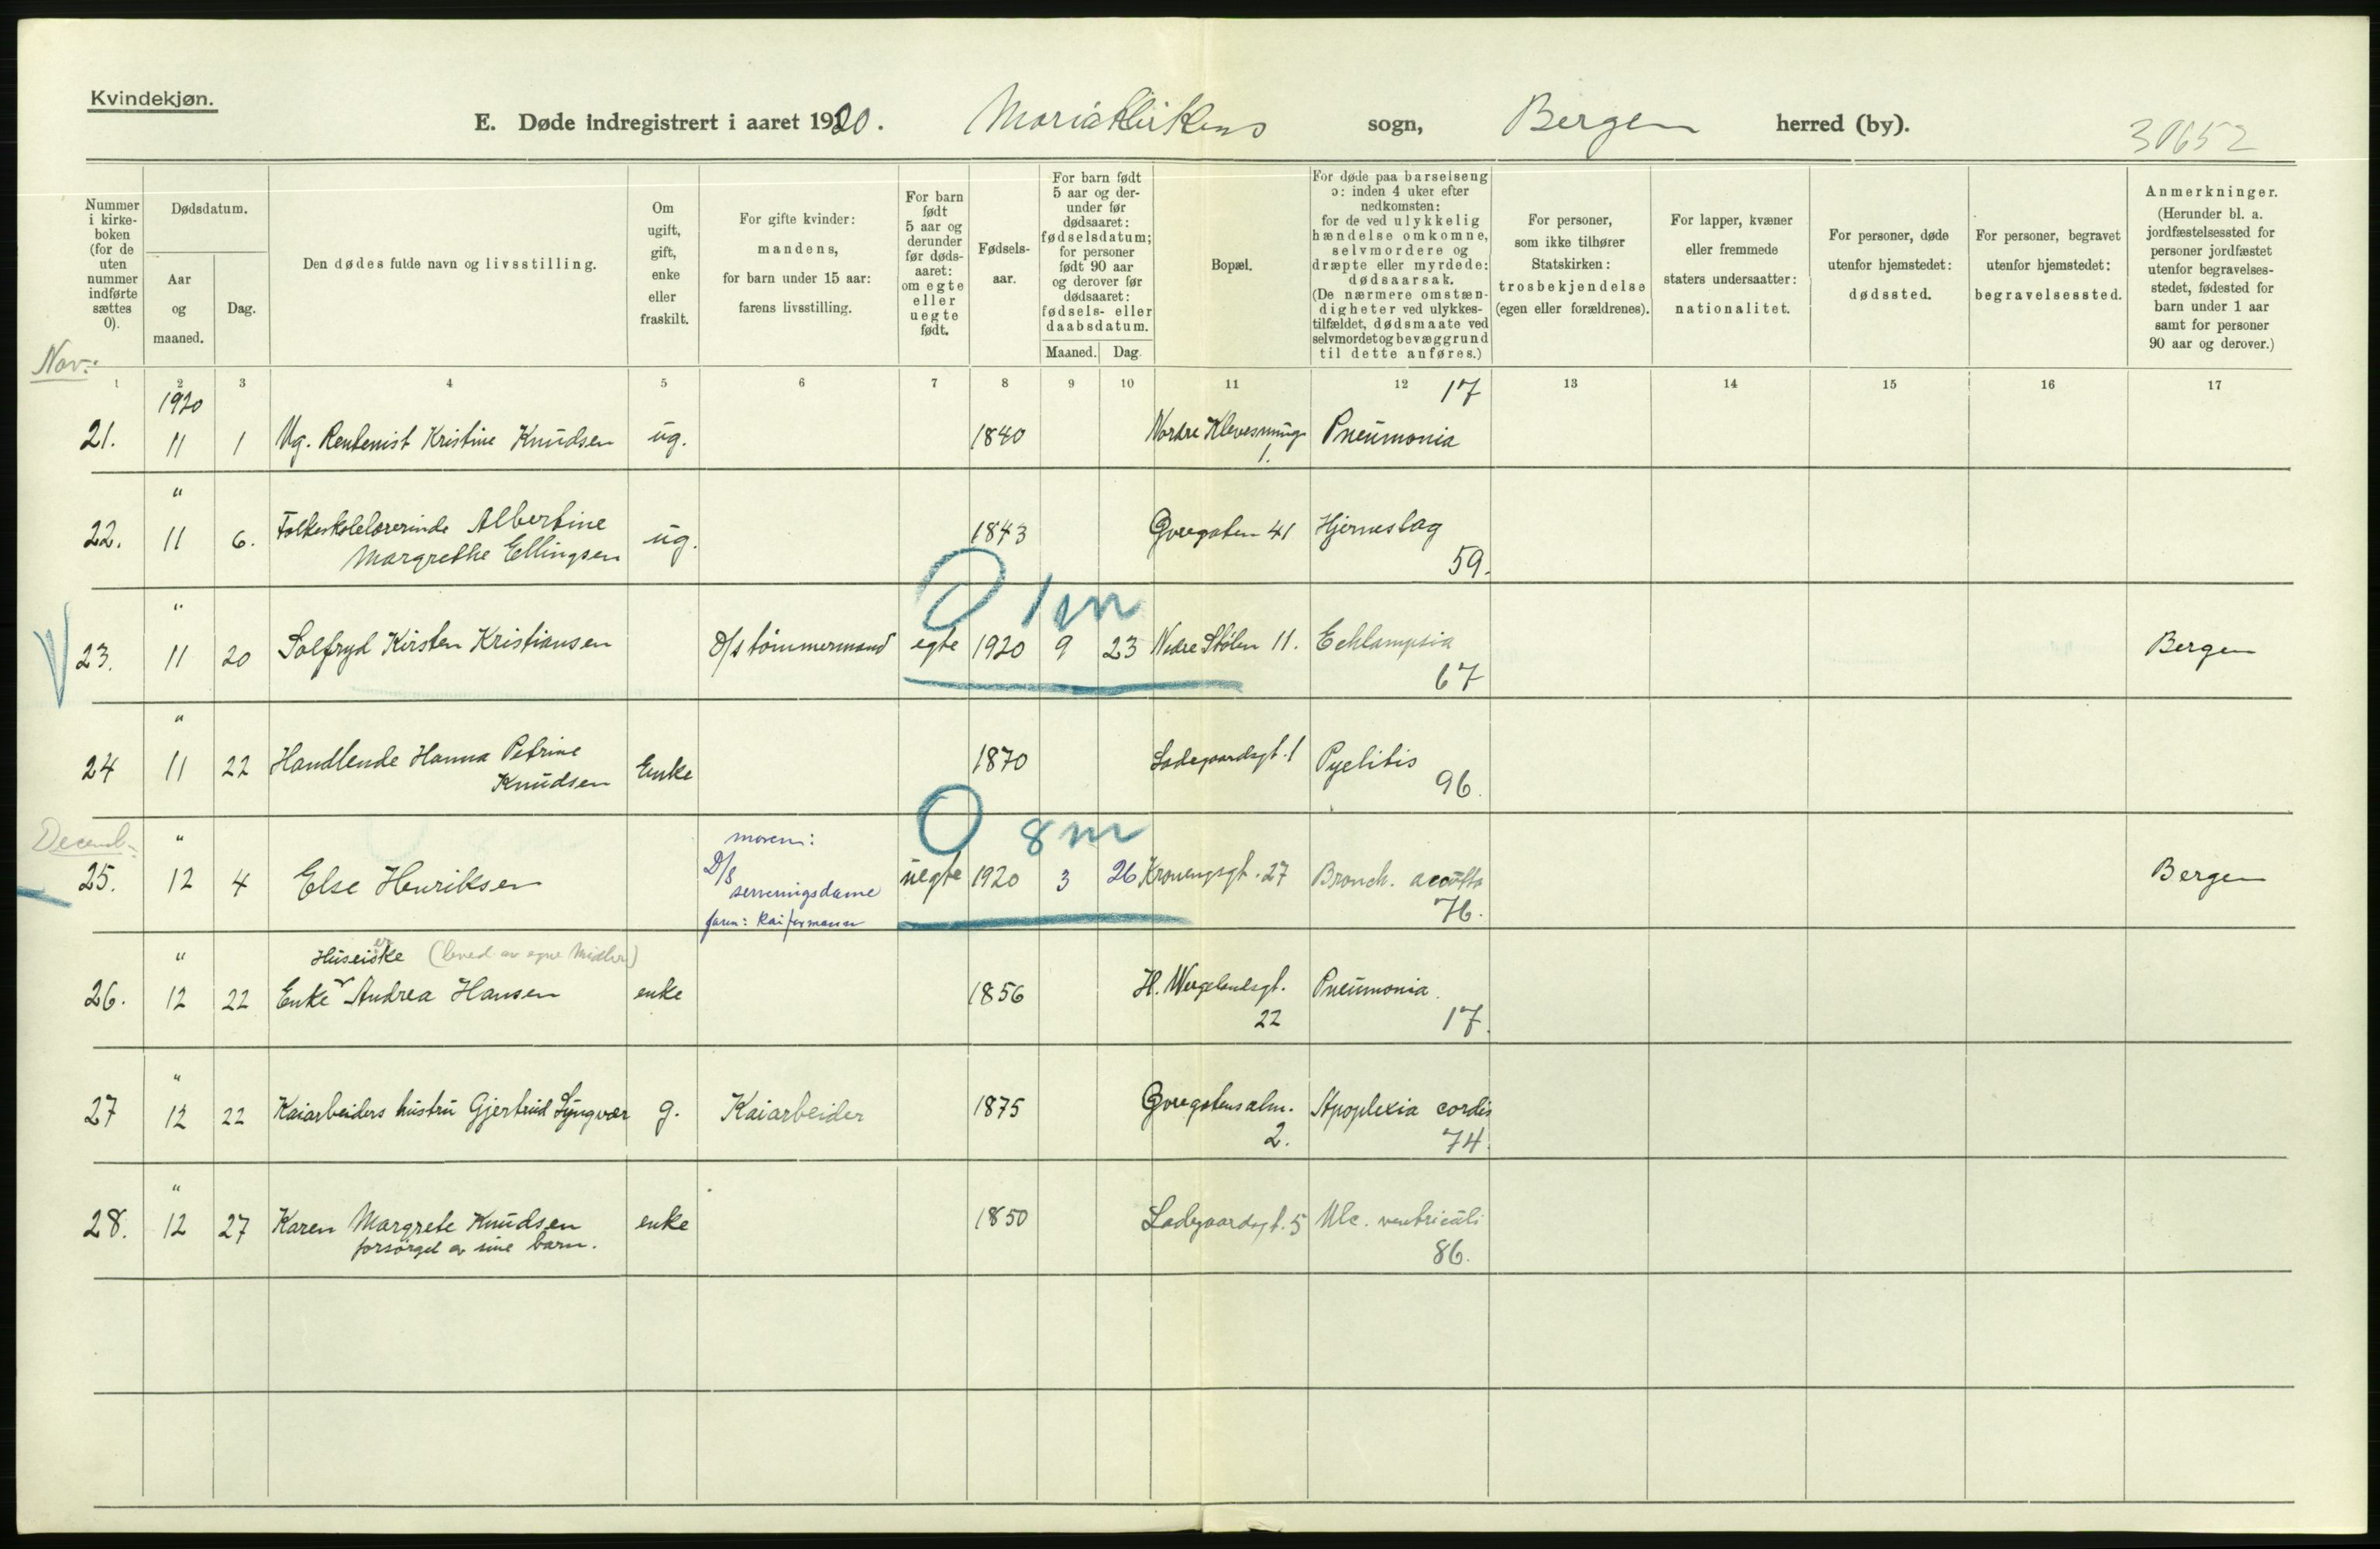 Kvindekjøn.
E. Døde indregistrert i aaret 1920. Mariakirkens sogn, Bergen herred (by).
30652
Nummer i kirke-boken (for de uten nummer indførte sættes 0).
Dødsdatum.
Aar og maaned.
Dag.
Den dødes fulde navn og livsstilling.
Om ugift, gift, enke eller fraskilt.
For gifte kvinder: mandens, for barn under 15 aar: farens livsstilling.
For barn født 5 aar og derunder før døds-aaret: om egte eller uegte født.
Fødsels-aar.
For barn født 5 aar og der-under før dødsaaret: fødselsdatum; for personer født 90 aar og derover før dødsaaret: fødsels- eller daabsdatum.
Maaned. Dag.
Bopæl.
For døde paa barselseng ɔ: inden 4 uker efter nedkomsten: for de ved ulykkelig hændelse omkomne, selvmordere og dræpte eller myrdede: dødsaarsak. (De nærmere omstæn-digheter ved ulykkes-tilfældet, dødsmaate ved selvmordet og bevæggrund til dette anføres.)
For personer, som ikke tilhører Statskirken: trosbekjendelse (egen eller forældrenes).
For lapper, kvæner eller fremmede staters undersaatter: nationalitet.
For personer, døde utenfor hjemstedet: dødssted.
For personer, begravet utenfor hjemstedet: begravelsessted.
Anmerkninger. (Herunder bl. a. jordfæstelsessted for personer jordfæstet utenfor begravelses-stedet, fødested for barn under 1 aar samt for personer 90 aar og derover.)
Nov.
1 2 3 4 5 6 7 8 9 10 11 12 13 14 15 16 17
1920 17
21. 11 1 Ug. Rentenist Kristine Knudsen ug. 1840 Nordre Pneumonia
1.
"
22. 11 6. Folkeskolelærerinde Albertine ug. 1843 Øvregaten 41 Hjerneslag
Margrethe Ellingsen 59.
0 1 m
"
23. 11 20 Solfryd Kirsten Kristiansen D/s tömmermand egte 1920 9 23 Nedre Stölen 11. Eeklampsia Bergen
67
"
24 11 22 Handlende Hanna Petrine Enke 1870 Ladegaardsgt. 1 Pyelitis
Knudsen 96
0 8 m
Decemb.
" moren:
25. 12 4 Else Henriksen D/s uegte 1920 3 26 27 Bronch. acuta Bergen
serveringsdame 76.
faren: kaiformann
" Huseierske (leved av egne Midler)
26. 12 22 Enke Andrea Hansen enke 1856 H. Wergelandsgt. Pneumonia
22 17.
"
27 12 22 Kaiarbeiders hustru Gjertrud Lyngvær g. Kaiarbeider 1875 Øvregatens alm. Apoplexia cordis
2. 74.
"
28. 12 27 Karen Margrete Knudsen enke 1850 Ladegaardsgt. 5 Ulc. ventriculi
forsörget av sine barn. 86.